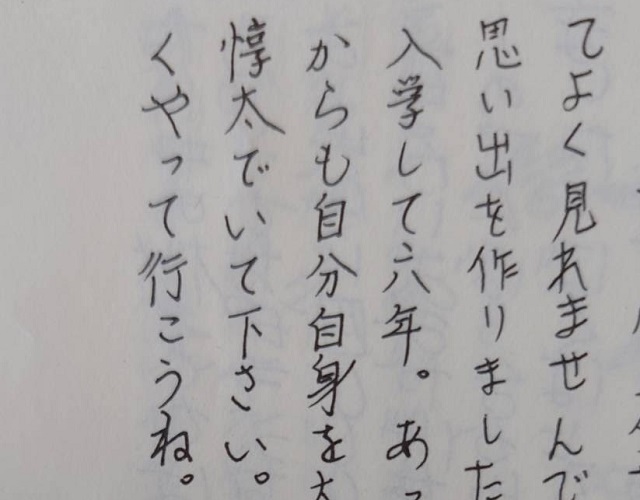 てよく見れませんで
思い出を作りました
入学して六年。あっ
からも自分自身を大
惇太でいて下さい。
くやって行こうね。